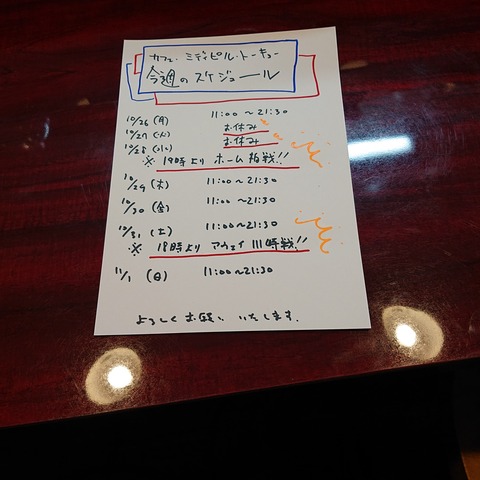 カフェ・ミディピル・トーキュー
今週のスケジュール
10/26 (月) 11:00～21:30
10/27 (火) お休み
10/28 (水) お休み
※ 19時より ホーム柏戦!!
10/29 (木) 11:00～21:30
10/30 (金) 11:00～21:30
10/31 (土) 11:00～21:30
※ 18時より アウェイ川崎戦!!
11/1 (日) 11:00～21:30
よろしくお願いいたします.